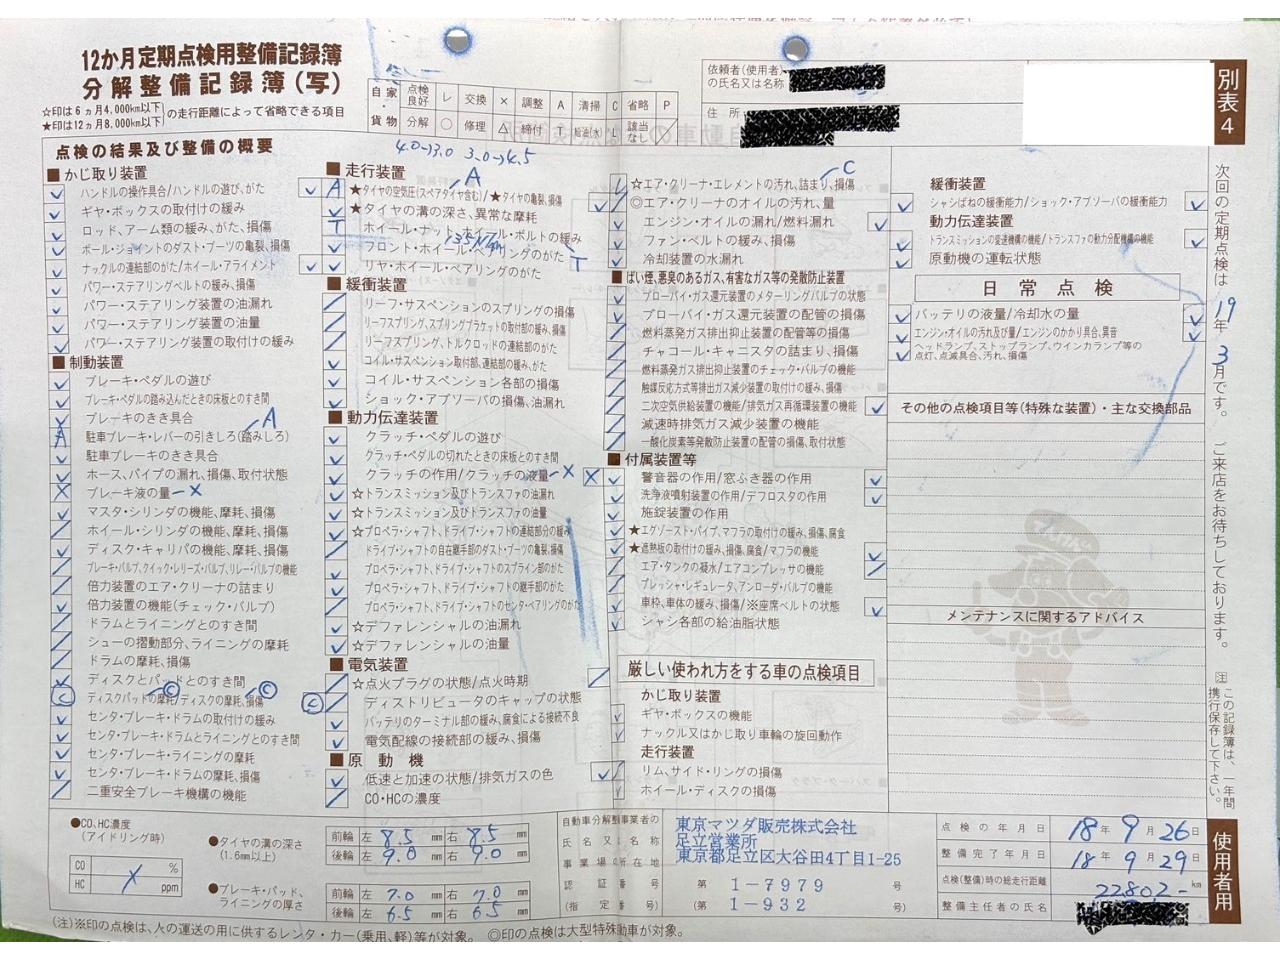 12か月定期点検用整備記録簿
分解整備記録簿(写)
☆印は6ヵ月4,000km以下
★印は12ヵ月8,000km以下
の走行距離によって省略できる項目
自家・貨物
点検良好 レ 交換 × 調整 A 清掃 C 省略 P
分解 ○ 修理 △ 締付 T 給油(水) L 該当なし ╱
依頼者(使用者)の氏名又は名称
住所
別表4
点検の結果及び整備の概要
4.0→3.0 3.0→4.5
■かじ取り装置
ハンドルの操作具合/ハンドルの遊び、がた
ギヤ・ボックスの取付けの緩み
ロッド、アーム類の緩み、がた、損傷
ボール・ジョイントのダスト・ブーツの亀裂、損傷
ナックルの連結部のがた/ホイール・アライメント
パワー・ステアリングベルトの緩み、損傷
パワー・ステアリング装置の油漏れ
パワー・ステアリング装置の油量
パワー・ステアリング装置の取付けの緩み
■制動装置
ブレーキ・ペダルの遊び
ブレーキ・ペダルの踏み込んだときの床板とのすき間
ブレーキのきき具合
駐車ブレーキ・レバーの引きしろ(踏みしろ) A
駐車ブレーキのきき具合
ホース、パイプの漏れ、損傷、取付状態
ブレーキ液の量 ×
マスタ・シリンダの機能、摩耗、損傷
ホイール・シリンダの機能、摩耗、損傷
ディスク・キャリパの機能、摩耗、損傷
ブレーキ・バルブ、クイック・レリーズ・バルブ、リレー・バルブの機能
倍力装置のエア・クリーナの詰まり
倍力装置の機能(チェック・バルブ)
ドラムとライニングとのすき間
シューの摺動部分、ライニングの摩耗
ドラムの摩耗、損傷
ディスクとパッドとのすき間
ディスクパッドの摩耗/ディスクの摩耗、損傷
センタ・ブレーキ・ドラムの取付けの緩み
センタ・ブレーキ・ドラムとライニングとのすき間
センタ・ブレーキ・ライニングの摩耗
センタ・ブレーキ・ドラムの摩耗、損傷
二重安全ブレーキ機構の機能
■走行装置 A
★タイヤの空気圧(スペアタイヤ含む)/★タイヤの亀裂、損傷
★タイヤの溝の深さ、異常な摩耗
ホイール・ナット、ホイール・ボルトの緩み
フロント・ホイール・ベアリングのがた T
リヤ・ホイール・ベアリングのがた
■緩衝装置
リーフ・サスペンションのスプリングの損傷
リーフスプリング、スプリングブラケットの取付部の緩み、損傷
リーフスプリング、トルクロッドの連結のがた
コイル・サスペンション取付部、連結部の緩み、がた
コイル・サスペンション各部の損傷
ショック・アブソーバの損傷、油漏れ
■動力伝達装置
クラッチ・ペダルの遊び
クラッチ・ペダルの切れたときの床板とのすき間
クラッチの作用/クラッチの液量 ×
☆トランスミッション及びトランスファの油漏れ
☆トランスミッション及びトランスファの油量
☆プロペラ・シャフト、ドライブ・シャフトの連結部分の緩み
ドライブ・シャフトの自在継手部のダスト・ブーツの亀裂、損傷
プロペラ・シャフト、ドライブ・シャフトのスプライン部のがた
プロペラ・シャフト、ドライブ・シャフトの継手部のがた
プロペラ・シャフト、ドライブ・シャフトのセンタ・ベアリングのがた
☆デファレンシャルの油漏れ
☆デファレンシャルの油量
■電気装置
☆点火プラグの状態/点火時期
ディストリビュータのキャップの状態
バッテリのターミナル部の緩み、腐食による接続不良
電気配線の接続部の緩み、損傷
■原動機
低速と加速の状態/排気ガスの色
CO・HCの濃度
☆エア・クリーナ・エレメントの汚れ、詰まり、損傷 C
◎エア・クリーナのオイルの汚れ、量
エンジン・オイルの漏れ/燃料漏れ
ファン・ベルトの緩み、損傷
冷却装置の水漏れ
■ばい煙、悪臭のあるガス、有害なガス等の発散防止装置
ブローバイ・ガス還元装置のメターリングバルブの状態
ブローバイ・ガス還元装置の配管の損傷
燃料蒸発ガス排出抑止装置の配管等の損傷
チャコール・キャニスタの詰まり、損傷
燃料蒸発ガス排出抑止装置のチェック・バルブの機能
触媒反応方式等排出ガス減少装置の取付けの緩み、損傷
二次空気供給装置の機能/排気ガス再循環装置の機能
減速時排気ガス減少装置の機能
一酸化炭素等発散防止装置の配管の損傷、取付状態
■付属装置等
警音器の作用/窓ふき器の作用
洗浄液噴射装置の作用/デフロスタの作用
施錠装置の作用
★エグゾースト・パイプ、マフラの取付けの緩み、損傷、腐食
★遮熱板の取付けの緩み、損傷、腐食/マフラの機能
エア・タンクの凝水/エアコンプレッサの機能
プレッシャ・レギュレータ、アンローダ・バルブの機能
車枠、車体の緩み、損傷/※座席ベルトの状態
シャシ各部の給油脂状態
厳しい使われ方をする車の点検項目
かじ取り装置
ギヤ・ボックスの機能
ナックル又はかじ取り車輪の旋回動作
走行装置
リム、サイド・リングの損傷
ホイール・ディスクの損傷
緩衝装置
シャシばねの緩衝能力/ショック・アブソーバの緩衝能力
動力伝達装置
トランスミッションの変速機構の機能/トランスファの動力分配機構の機能
原動機の運転状態
日常点検
バッテリの液量/冷却水の量
エンジン・オイルの汚れ及び量/エンジンのかかり具合、異音
ヘッドランプ、ストップランプ、ウインカランプ等の点灯、点滅具合、汚れ、損傷
その他の点検項目等(特殊な装置)・主な交換部品
メンテナンスに関するアドバイス
次回の定期点検は 19年 3月です。 ご来店をお待ちしております。
注 この記録簿は、一年間携行保存して下さい。
使用者用
●CO、HC濃度
(アイドリング時)
CO %
HC ppm
●タイヤの溝の深さ
(1.6mm以上)
前輪 左 8.5 mm 右 8.5 mm
後輪 左 9.0 mm 右 9.0 mm
●ブレーキ・パッド、ライニングの厚さ
前輪 左 7.0 mm 右 7.0 mm
後輪 左 6.5 mm 右 6.5 mm
自動車分解整備事業者の
氏名又は名称
事業場の所在地
認証番号
(指定番号)
東京マツダ販売株式会社
足立営業所
東京都足立区大谷田4丁目1-25
第 1-7979 号
(第 1-932 号)
点検の年月日 18年 9月 26日
整備完了年月日 18年 9月 29日
点検(整備)時の総走行距離 22802- km
整備主任者の氏名
(注)※印の点検は、人の運送の用に供するレンタ・カー(乗用、軽)等が対象。 ◎印の点検は大型特殊自動車が対象。